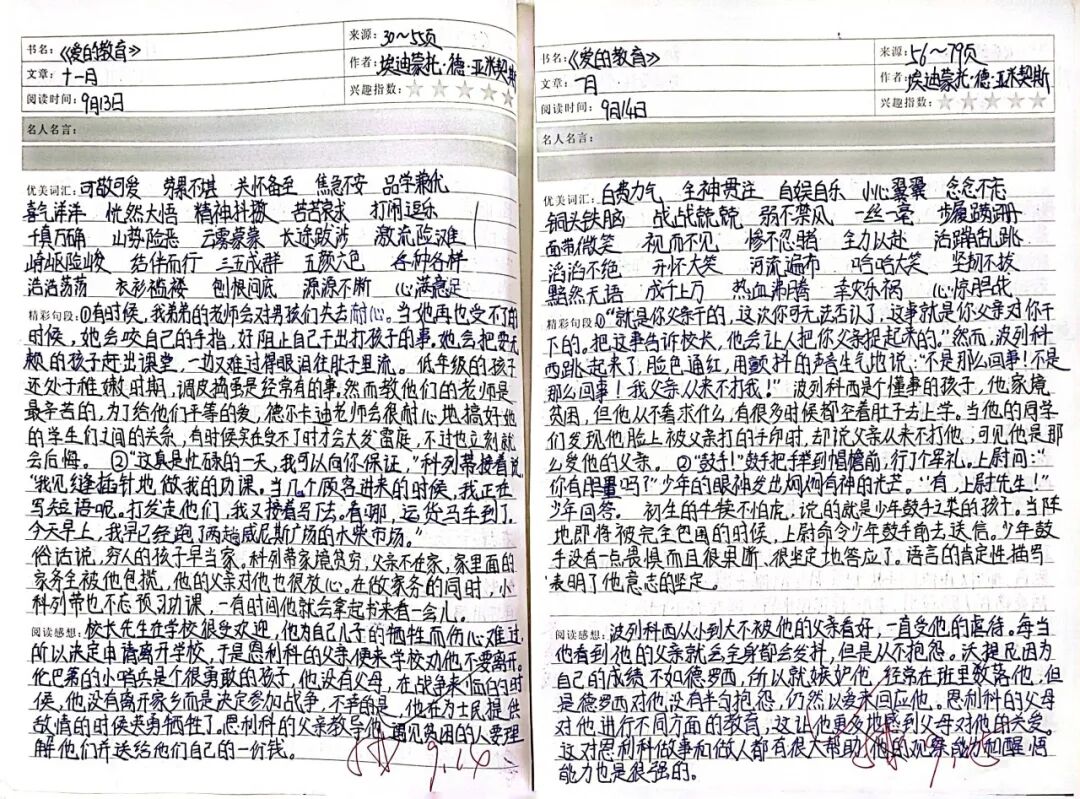 书名:《爱的教育》
来源:30～55页
文章:十一月
作者:埃迪蒙托·德·亚米契斯
阅读时间:9月13日
兴趣指数:
名人名言:
优美词汇:可敬可爱 劳累不堪 关怀备至 焦急不安 品学兼优
喜气洋洋 恍然大悟 精神抖擞 苦苦哀求 打闹逗乐
千真万确 山势险恶 云雾蒙蒙 长途跋涉 激流险滩
崎岖险峻 结伴而行 三五成群 五颜六色 各种各样
浩浩荡荡 衣衫褴褛 刨根问底 源源不断 心满意足
精彩句段:①有时候,我弟弟的老师会对男孩们失去耐心。当她再也受不了的
时候,她会咬自己的手指,好阻止自己干出打孩子的事,她会把耍无
赖的孩子赶出课堂,一边又难过得眼泪往肚子里流。 低年级的孩子
还处于稚嫩时期,调皮捣蛋是经常有的事,然而教他们的老师是
最辛苦的,为了给他们平等的爱,德尔卡迪老师会很耐心地搞好她
的学生们之间的关系,有时候实在受不了时才会大发雷庭,不过也立刻就
会后悔。 ②“这真是忙碌的一天,我可以向你保证,”科列带接着说
“我见缝插针地做我的功课。当几个顾客进来的时候,我正在
写短语呢。打发走他们,我又接着写了去。看哪,运货马车到了。
今天早上,我早已经跑了两趟威尼斯广场的木柴市场。”
俗话说,穷人的孩子早当家。科列带家境贫穷,父亲不在家,家里面的
家务全被他包揽,他的父亲对他也很放心。在做家务的同时,小
科列带也不忘预习功课,一有时间他就会拿起书来看一会儿。
阅读感想:校长先生在学校很受欢迎,他为自己儿子的牺牲而伤心难过,
所以决定申请离开学校,于是恩利科的父亲便来学校劝他不要离开。
伦巴第的小哨兵是个很勇敢的孩子,他没有父母,在战争来临的时
候,他没有离开家乡而是决定参加战争,不幸的是,他在为士民提供
敌情的时候英勇牺牲了。恩利科的父亲教导他,遇见贫困的人要理
解他们并送给他们自己的一份钱。
9.14
书名:《爱的教育》
来源:56～79页
文章:一月
作者:埃迪蒙托·德·亚米契斯
阅读时间:9月14日
兴趣指数:
名人名言:
优美词汇:白费力气 全神贯注 自娱自乐 小心翼翼 念念不忘
铜头铁脑 战战兢兢 弱不禁风 一丝一毫 步履蹒跚
面带微笑 视而不见 惨不忍睹 全力以赴 活蹦乱跳
滔滔不绝 开怀大笑 河流遍布 哈哈大笑 坚韧不拔
黯然无语 成千上万 热血沸腾 幸灾乐祸 心惊胆战
精彩句段:①“就是你父亲干的,这次你可无法否认了,这事就是你父亲对你干
下的。把这事告诉校长,他会让人把你父亲捉起来的。”然而,波列科
西跳起来了,脸色通红,用颤抖的声音生气地说:“不是那么回事!不是
那么回事!我父亲从来不打我!” 波列科西是个懂事的孩子,他家境
贫困,但他从不奢求什么,有很多时候都空着肚子去上学。当他的同学
们发现他脸上被父亲打的手印时,却说父亲从来不打他,可见他是那
么爱他的父亲。 ②“鼓手!”鼓手把手举到帽檐前,行了个军礼。上尉问:“
你有胆量吗?”少年的眼神发出炯炯有神的光芒。“有,上尉先生!”
少年回答。 初生的牛犊不怕虎,说的就是少年鼓手之类的孩子。当阵
地即将被完全包围的时候,上尉命令少年鼓手前去送信。少年鼓
手没有一点畏惧而且很果断、很坚定地答应了。语言的肯定性描写
表明了他意志的坚定。
阅读感想:波列科西从小到大不被他的父亲看好,一直受他的虐待。每当
他看到他的父亲就会全身都会发抖,但是从不抱怨。沃提尼因为
自己的成绩不如德罗西,所以就嫉妒他,经常在班里数落他,但
是德罗西对他没有半句抱怨,仍然以爱来回应他。恩利科的父母
对他进行不同方面的教育,这让他更多地感到父母对他的关爱。
这对恩利科做事和做人都有很大帮助,他的观察能力和醒悟
能力也是很强的。